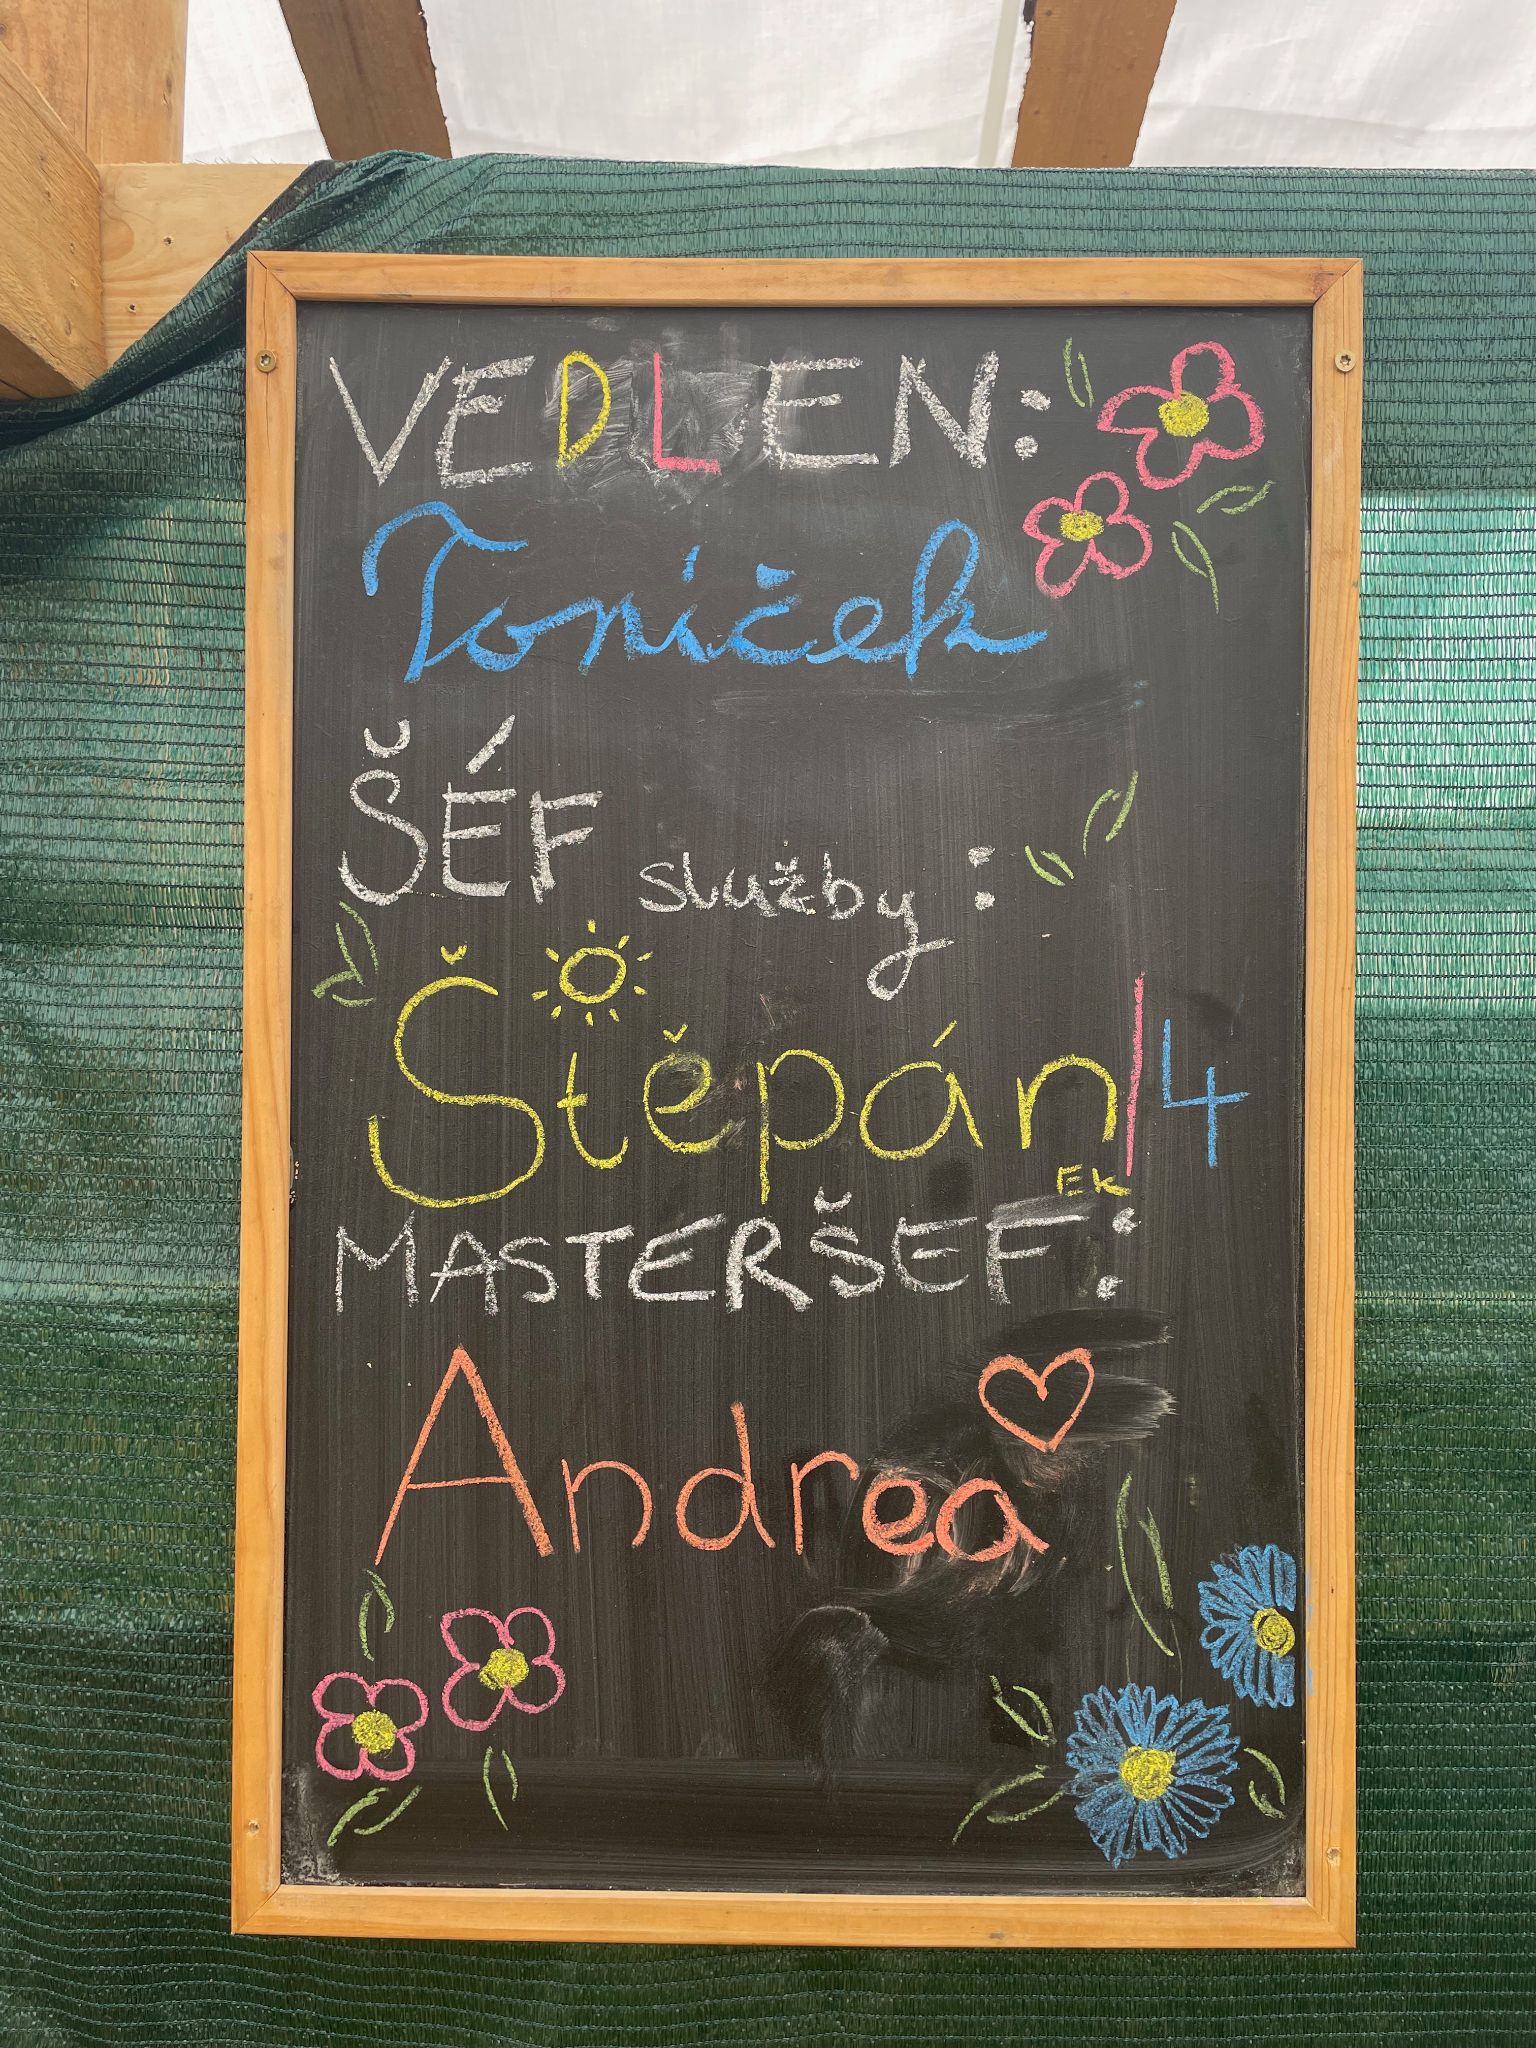 VEDLEN:
Toníček
ŠÉF služby:
Štěpán/4
EK
MASTERŠEF:
Andrea